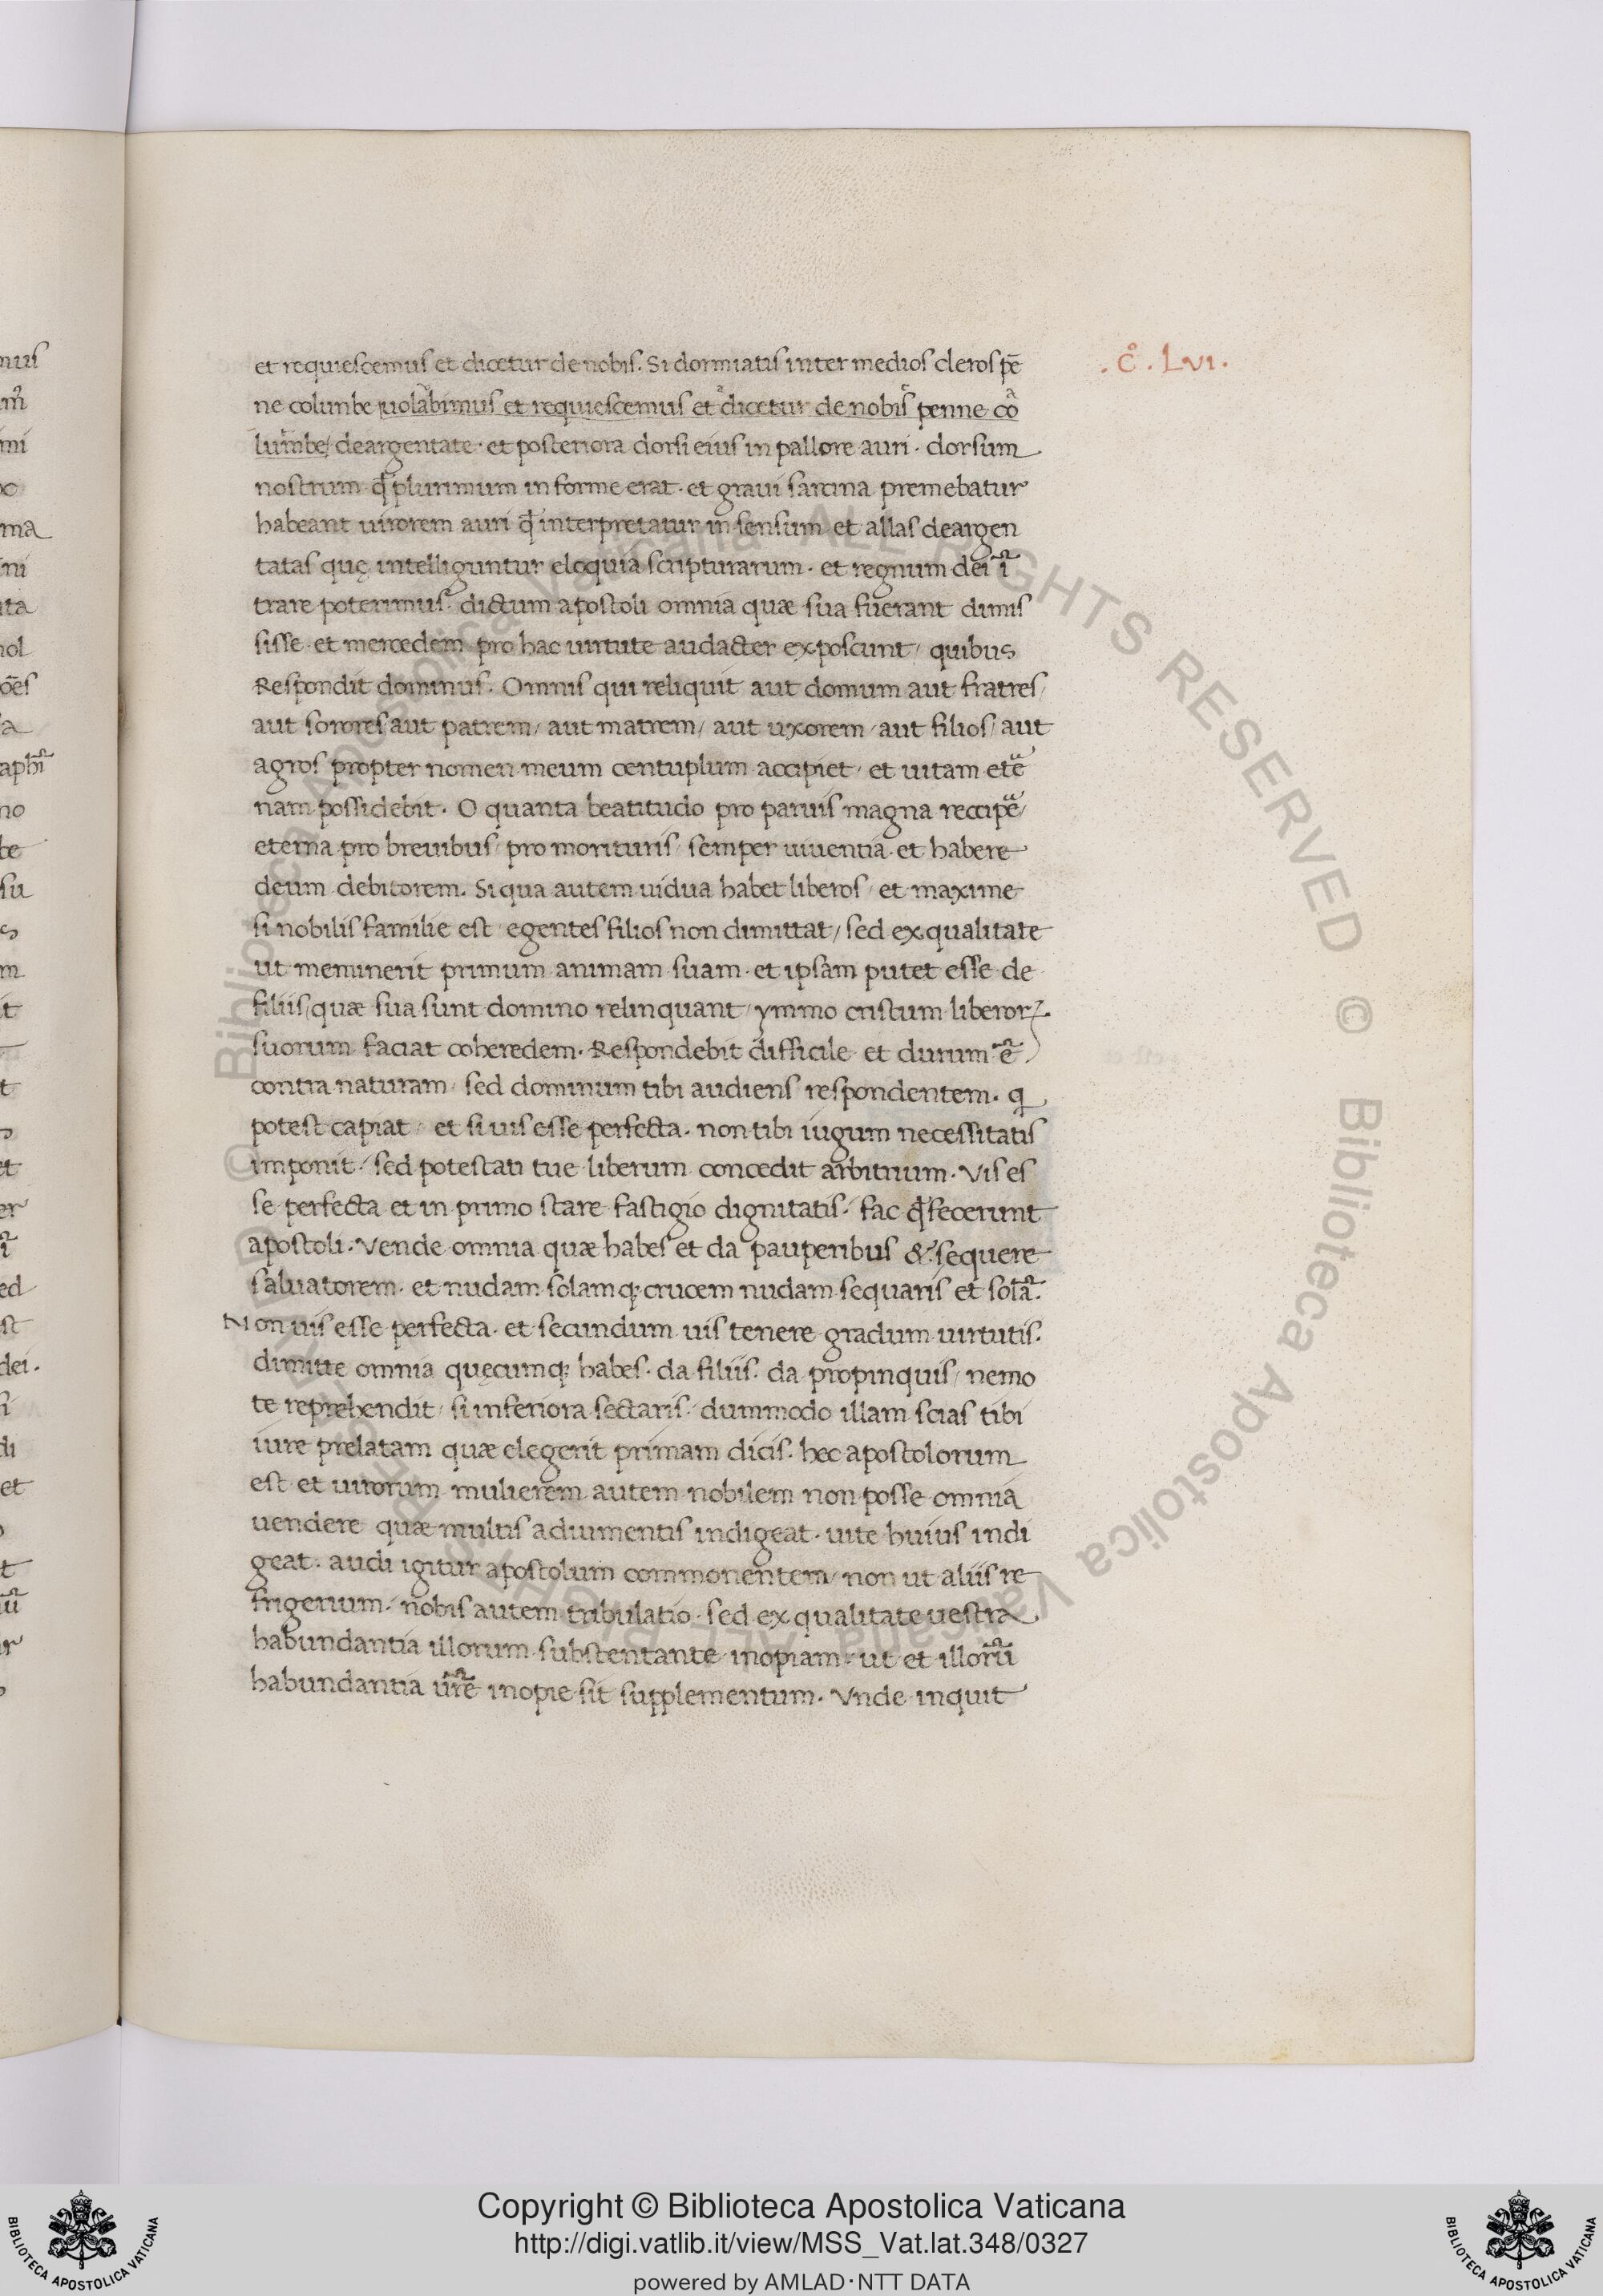 nus
et requiescemus et dicetur de nobis. Si dormiatis inter medios cleros pē
. c̊ . Lvi .
ne columbe uolabimus et requiescemus et dicetur de nobis penne co
lumbe deargentate · et posteriora dorsi eius in pallore auri · dorsum
nostrum qđ plurimum in forme erat · et graui sarcina premebatur
habeant uirorem auri qđ interpretatur in sensum et allas deargen
tatas quę intelliguntur eloquia scripturarum · et regnum dei ī
trare poterimus · dictum apostoli omnia quæ sua fuerant dimis
sisse · et mercedem pro hac uirtute audacter exposcunt / quibus
Respondit dominus . Omnis qui reliquit aut domum aut fratres /
aut sorores aut patrem / aut matrem / aut uxorem / aut filios / aut
agros propter nomen meum centuplum accipiet / et uitam etē
nam possidebit . O quanta beatitudo pro paruis magna reccipē /
eterna pro breuibus / pro morituris / semper uiuentia · et habere
deum debitorem . Si qua autem uidua habet liberos / et maxime
si nobilis familie est / egentes filios non dimittat / sed ex qualitate
ut meminerit primum animam suam · et ipsam putet esse de
filiis / quæ sua sunt domino relinquant / ymmo cristum liberorꝝ .
suorum faciat coheredem . Respondebit difficile et durum ē /
contra naturam / sed dominum tibi audiens respondentem . q
potest capiat / et si uis esse perfecta · non tibi iugum necessitatis
imponit / sed potestati tue liberum concedit arbitrium . Vis es
se perfecta et in primo stare fastigio dignitatis / fac qđ fecerunt
apostoli . Vende omnia quæ habes et da pauperibus & sequere
saluatorem · et nudam solamq; crucem nudam sequaris et solā .
Non uis esse perfecta · et secundum uis tenere gradum uirtutis .
dimitte omnia quęcumq; habes . da filiis . da propinquis / nemo
te reprehendit / si inferiora sectaris / dummodo illam scias tibi
iure prelatam quæ elegerit primam dicis . hec apostolorum
est et uirorum mulierem autem nobilem non posse omnia
uendere quæ multis adiumentis indigeat · uite huius indi
geat · audi igitur apostolum commonentem / non ut aliis re
frigerium / nobis autem tribulatio · sed ex qualitate uestra
habundantia illorum substentante inopiam · ut et illorū
habundantia ūrē inopie sit supplementum . Vnde inquit
© Biblioteca Apostolica Vaticana ALL RIGHTS RESERVED
© Biblioteca Apostolica Vaticana ALL RIGHTS RESERVED
Copyright © Biblioteca Apostolica Vaticana
http://digi.vatlib.it/view/MSS_Vat.lat.348/0327
powered by AMLAD·NTT DATA
BIBLIOTECA APOSTOLICA VATICANA
BIBLIOTECA APOSTOLICA VATICANA